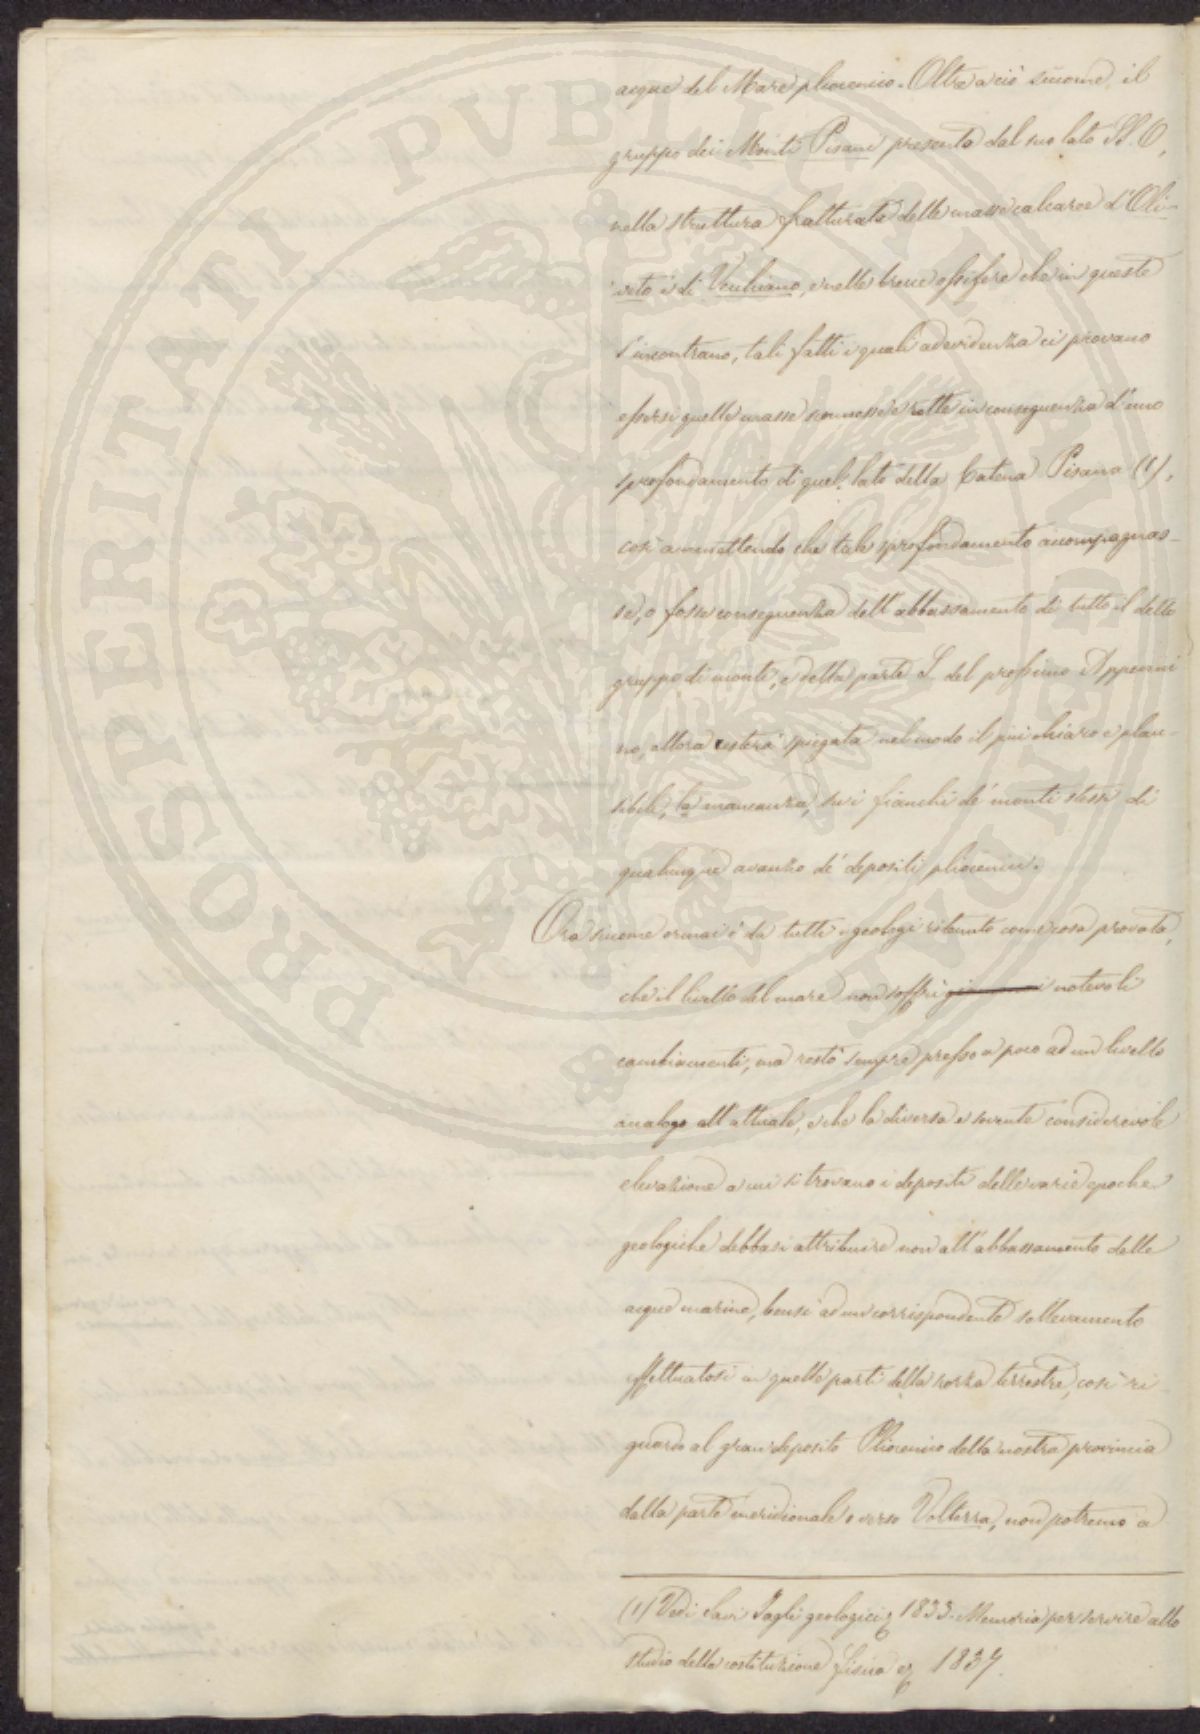 acque del Mare pliocenico. Oltre a ciò siccome il
gruppo dei Monti Pisani presenta dal suo lato SS.O,
nella struttura fratturata delle masse calcaree d'Oli-
veto e di Vecchiano, e nelle brecce ossifere che in queste
s'incontrano, tali fatti i quali ad evidenza ci provano
essersi quelle masse sconnesse e rotte in conseguenza d'uno
sprofondamento di quel lato della Catena Pisana (1),
così ammettendo che tale sprofondamento accompagnas-
se, o fosse conseguenza dell'abbassamento di tutto il detto
gruppo di monti, e della parte S. del prossimo Appenni
no, allora resterà spiegata nel modo il più chiaro e plau-
sibile, la mancanza, su i fianchi de' monti stessi di
qualunque avanzo de' depositi pliocenici.
Ora siccome ormai è da tutti i geologi ritenuto come cosa provata,
che il livello del mare non soffrì notevoli
cambiamenti, ma restò sempre presso a poco ad un livello
analogo all'attuale, e che la diversa e sovente considerevole
elevazione a cui si trovano i depositi delle varie epoche
geologiche debbasi attribuire non all'abbassamento delle
acque marine, bensì ad un corrispondente sollevamento
effettuatosi in quelle parti della scorza terrestre, così ri
guardo al gran deposito Pliocenico della nostra provincia
dalla parte meridionale e verso Volterra, non potremo a
(1) Vedi Savi Tagli geologici & 1833. Memoria per servire allo
studio della costituzione fisica & 1837.
PROSPERITATI PUBLICAE AUGENDAE